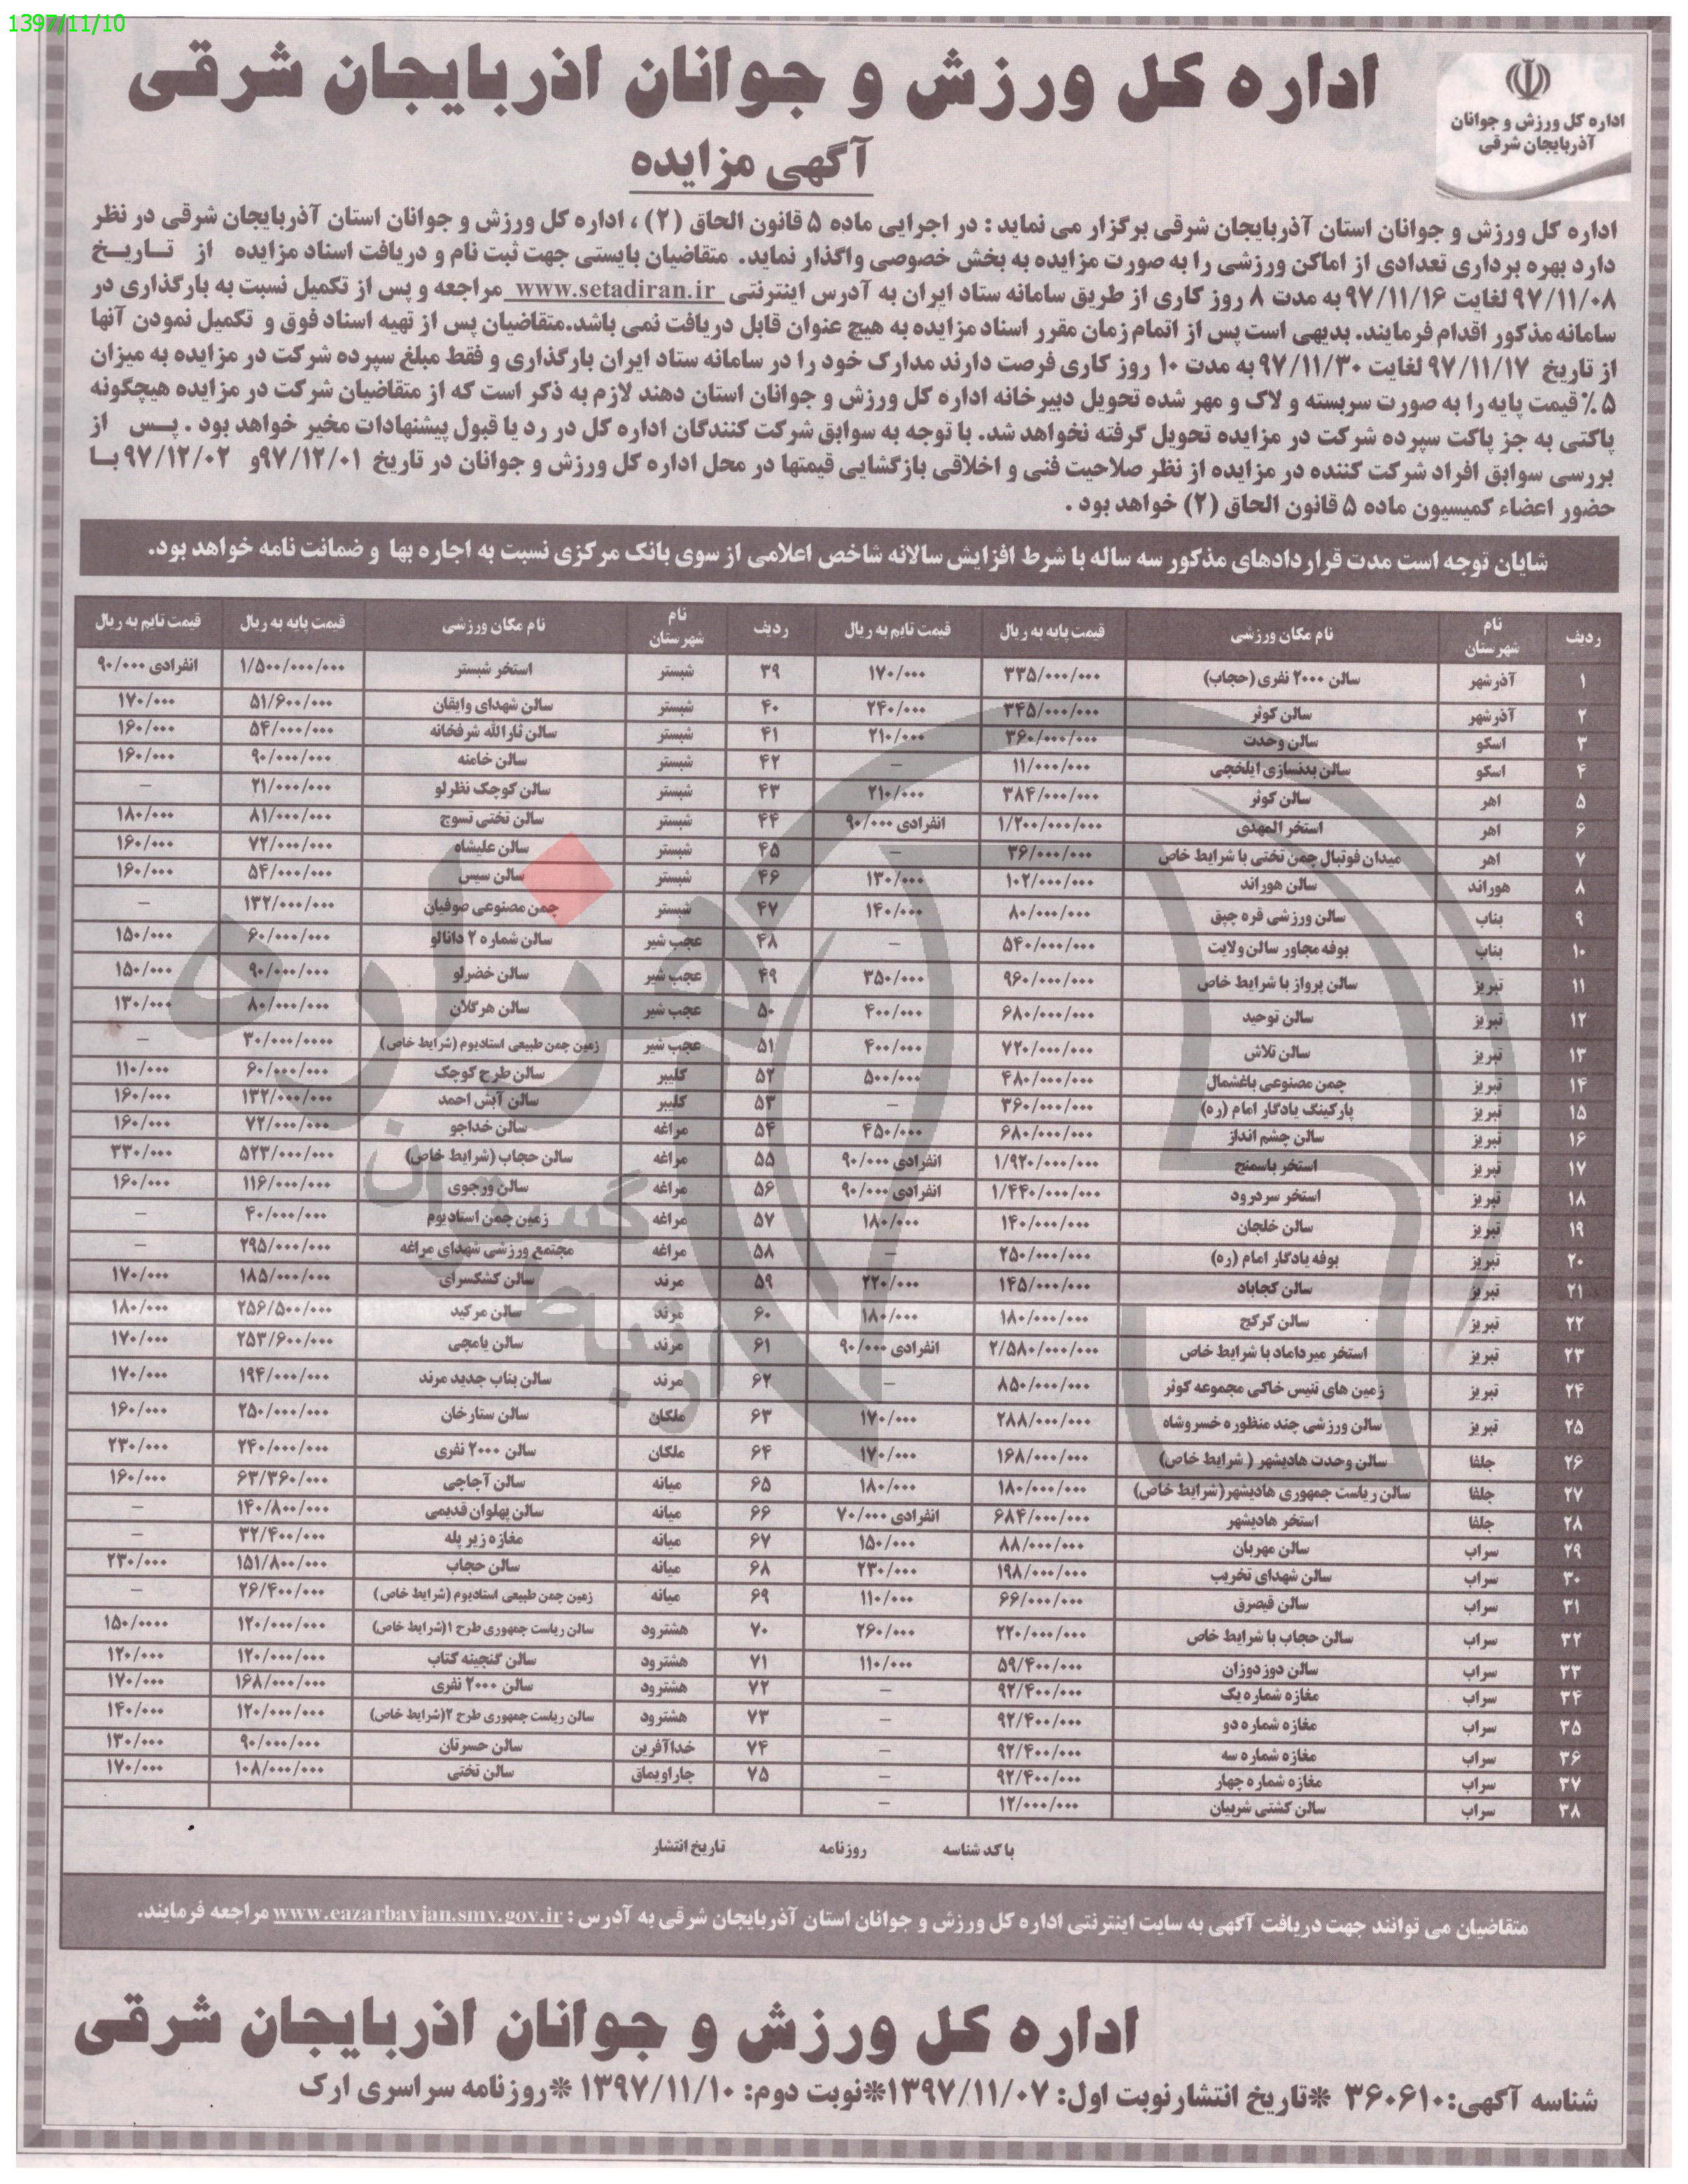 1397/11/10
اداره کل ورزش و جوانان آذربایجان شرقی
اداره کل ورزش و جوانان اذربایجان شرقی
آگهی مزایده
اداره کل ورزش و جوانان استان آذربایجان شرقی برگزار می نماید : در اجرایی ماده ۵ قانون الحاق (۲) ، اداره کل ورزش و جوانان استان آذربایجان شرقی در نظر
دارد بهره برداری تعدادی از اماکن ورزشی را به صورت مزایده به بخش خصوصی واگذار نماید. متقاضیان بایستی جهت ثبت نام و دریافت اسناد مزایده از تاریخ
۹۷/۱۱/۰۸ لغایت ۹۷/۱۱/۱۶ به مدت ۸ روز کاری از طریق سامانه ستاد ایران به آدرس اینترنتی www.setadiran.ir مراجعه و پس از تکمیل نسبت به بارگذاری در
سامانه مذکور اقدام فرمایند. بدیهی است پس از اتمام زمان مقرر اسناد مزایده به هیچ عنوان قابل دریافت نمی باشد.متقاضیان پس از تهیه اسناد فوق و تکمیل نمودن آنها
از تاریخ ۹۷/۱۱/۱۷ لغایت ۹۷/۱۱/۳۰ به مدت ۱۰ روز کاری فرصت دارند مدارک خود را در سامانه ستاد ایران بارگذاری و فقط مبلغ سپرده شرکت در مزایده به میزان
۵٪ قیمت پایه را به صورت سربسته و لاک و مهر شده تحویل دبیرخانه اداره کل ورزش و جوانان استان دهند لازم به ذکر است که از متقاضیان شرکت در مزایده هیچگونه
پاکتی به جز پاکت سپرده شرکت در مزایده تحویل گرفته نخواهد شد. با توجه به سوابق شرکت کنندگان اداره کل در رد یا قبول پیشنهادات مخیر خواهد بود . پس از
بررسی سوابق افراد شرکت کننده در مزایده از نظر صلاحیت فنی و اخلاقی بازگشایی قیمتها در محل اداره کل ورزش و جوانان در تاریخ ۹۷/۱۲/۰۱ و ۹۷/۱۲/۰۲ با
حضور اعضاء کمیسیون ماده ۵ قانون الحاق (۲) خواهد بود .
شایان توجه است مدت قراردادهای مذکور سه ساله با شرط افزایش سالانه شاخص اعلامی از سوی بانک مرکزی نسبت به اجاره بها و ضمانت نامه خواهد بود.
ردیف نام شهرستان نام مکان ورزشی قیمت پایه به ریال قیمت تایم به ریال ردیف نام شهرستان نام مکان ورزشی قیمت پایه به ریال قیمت تایم به ریال
۱ آذرشهر سالن ۲۰۰۰ نفری (حجاب) ۳۳۵/۰۰۰/۰۰۰ ۱۷۰/۰۰۰ ۳۹ شبستر استخر شبستر ۱/۵۰۰/۰۰۰/۰۰۰ انفرادی ۹۰/۰۰۰
۲ آذرشهر سالن کوثر ۳۴۵/۰۰۰/۰۰۰ ۲۴۰/۰۰۰ ۴۰ شبستر سالن شهدای وایقان ۵۱/۶۰۰/۰۰۰ ۱۷۰/۰۰۰
۳ اسکو سالن وحدت ۳۶۰/۰۰۰/۰۰۰ ۲۱۰/۰۰۰ ۴۱ شبستر سالن ثارالله شرفخانه ۵۴/۰۰۰/۰۰۰ ۱۶۰/۰۰۰
۴ اسکو سالن بدنسازی ایلخچی ۱۱/۰۰۰/۰۰۰ – ۴۲ شبستر سالن خامنه ۹۰/۰۰۰/۰۰۰ ۱۶۰/۰۰۰
۵ اهر سالن کوثر ۳۸۴/۰۰۰/۰۰۰ ۲۱۰/۰۰۰ ۴۳ شبستر سالن کوچک نظرلو ۲۱/۰۰۰/۰۰۰ –
۶ اهر استخر المهدی ۱/۲۰۰/۰۰۰/۰۰۰ انفرادی ۹۰/۰۰۰ ۴۴ شبستر سالن تختی تسوج ۸۱/۰۰۰/۰۰۰ ۱۸۰/۰۰۰
۷ اهر میدان فوتبال چمن تختی با شرایط خاص ۳۶/۰۰۰/۰۰۰ – ۴۵ شبستر سالن علیشاه ۷۲/۰۰۰/۰۰۰ ۱۶۰/۰۰۰
۸ هوراند سالن هوراند ۱۰۲/۰۰۰/۰۰۰ ۱۳۰/۰۰۰ ۴۶ شبستر سالن سیس ۵۴/۰۰۰/۰۰۰ ۱۶۰/۰۰۰
۹ بناب سالن ورزشی قره چپق ۸۰/۰۰۰/۰۰۰ ۱۴۰/۰۰۰ ۴۷ شبستر چمن مصنوعی صوفیان ۱۳۲/۰۰۰/۰۰۰ –
۱۰ بناب بوفه مجاور سالن ولایت ۵۴۰/۰۰۰/۰۰۰ – ۴۸ عجب شیر سالن شماره ۲ دانالو ۶۰/۰۰۰/۰۰۰ ۱۵۰/۰۰۰
۱۱ تبریز سالن پرواز با شرایط خاص ۹۶۰/۰۰۰/۰۰۰ ۳۵۰/۰۰۰ ۴۹ عجب شیر سالن خضرلو ۹۰/۰۰۰/۰۰۰ ۱۵۰/۰۰۰
۱۲ تبریز سالن توحید ۶۸۰/۰۰۰/۰۰۰ ۴۰۰/۰۰۰ ۵۰ عجب شیر سالن هرگلان ۸۰/۰۰۰/۰۰۰ ۱۳۰/۰۰۰
۱۳ تبریز سالن تلاش ۷۲۰/۰۰۰/۰۰۰ ۴۰۰/۰۰۰ ۵۱ عجب شیر زمین چمن طبیعی استادیوم (شرایط خاص) ۳۰/۰۰۰/۰۰۰۰ –
۱۴ تبریز چمن مصنوعی باغشمال ۴۸۰/۰۰۰/۰۰۰ ۵۰۰/۰۰۰ ۵۲ کلیبر سالن طرح کوچک ۶۰/۰۰۰/۰۰۰ ۱۱۰/۰۰۰
۱۵ تبریز پارکینگ یادگار امام (ره) ۳۶۰/۰۰۰/۰۰۰ – ۵۳ کلیبر سالن آبش احمد ۱۳۲/۰۰۰/۰۰۰ ۱۶۰/۰۰۰
۱۶ تبریز سالن چشم انداز ۶۸۰/۰۰۰/۰۰۰ ۴۵۰/۰۰۰ ۵۴ مراغه سالن خداجو ۷۲/۰۰۰/۰۰۰ ۱۶۰/۰۰۰
۱۷ تبریز استخر باسمنج ۱/۹۲۰/۰۰۰/۰۰۰ انفرادی ۹۰/۰۰۰ ۵۵ مراغه سالن حجاب (شرایط خاص) ۵۲۳/۰۰۰/۰۰۰ ۳۳۰/۰۰۰
۱۸ تبریز استخر سردرود ۱/۴۴۰/۰۰۰/۰۰۰ انفرادی ۹۰/۰۰۰ ۵۶ مراغه سالن ورجوی ۱۱۶/۰۰۰/۰۰۰ ۱۶۰/۰۰۰
۱۹ تبریز سالن خلجان ۱۴۰/۰۰۰/۰۰۰ ۱۸۰/۰۰۰ ۵۷ مراغه زمین چمن استادیوم ۴۰/۰۰۰/۰۰۰ –
۲۰ تبریز بوفه یادگار امام (ره) ۲۵۰/۰۰۰/۰۰۰ – ۵۸ مراغه مجتمع ورزشی شهدای مراغه ۲۹۵/۰۰۰/۰۰۰ –
۲۱ تبریز سالن کجاباد ۱۴۵/۰۰۰/۰۰۰ ۲۲۰/۰۰۰ ۵۹ مرند سالن کشکسرای ۱۸۵/۰۰۰/۰۰۰ ۱۷۰/۰۰۰
۲۲ تبریز سالن کرکج ۱۸۰/۰۰۰/۰۰۰ ۱۸۰/۰۰۰ ۶۰ مرند سالن مرکید ۲۵۶/۵۰۰/۰۰۰ ۱۸۰/۰۰۰
۲۳ تبریز استخر میرداماد با شرایط خاص ۲/۵۸۰/۰۰۰/۰۰۰ انفرادی ۹۰/۰۰۰ ۶۱ مرند سالن یامچی ۲۵۳/۶۰۰/۰۰۰ ۱۷۰/۰۰۰
۲۴ تبریز زمین های تنیس خاکی مجموعه کوثر ۸۵۰/۰۰۰/۰۰۰ – ۶۲ مرند سالن بناب جدید مرند ۱۹۴/۰۰۰/۰۰۰ ۱۷۰/۰۰۰
۲۵ تبریز سالن ورزشی چند منظوره خسروشاه ۲۸۸/۰۰۰/۰۰۰ ۱۷۰/۰۰۰ ۶۳ ملکان سالن ستارخان ۲۵۰/۰۰۰/۰۰۰ ۱۶۰/۰۰۰
۲۶ جلفا سالن وحدت هادیشهر ( شرایط خاص) ۱۶۸/۰۰۰/۰۰۰ ۱۷۰/۰۰۰ ۶۴ ملکان سالن ۲۰۰۰ نفری ۲۴۰/۰۰۰/۰۰۰ ۲۳۰/۰۰۰
۲۷ جلفا سالن ریاست جمهوری هادیشهر(شرایط خاص) ۱۸۰/۰۰۰/۰۰۰ ۱۸۰/۰۰۰ ۶۵ میانه سالن آچاچی ۶۳/۳۶۰/۰۰۰ ۱۶۰/۰۰۰
۲۸ جلفا استخر هادیشهر ۶۸۴/۰۰۰/۰۰۰ انفرادی ۷۰/۰۰۰ ۶۶ میانه سالن پهلوان قدیمی ۱۴۰/۸۰۰/۰۰۰ –
۲۹ سراب سالن مهربان ۸۸/۰۰۰/۰۰۰ ۱۵۰/۰۰۰ ۶۷ میانه مغازه زیر پله ۳۲/۴۰۰/۰۰۰ –
۳۰ سراب سالن شهدای تخریب ۱۹۸/۰۰۰/۰۰۰ ۲۳۰/۰۰۰ ۶۸ میانه سالن حجاب ۱۵۱/۸۰۰/۰۰۰ ۲۳۰/۰۰۰
۳۱ سراب سالن قیصرق ۶۶/۰۰۰/۰۰۰ ۱۱۰/۰۰۰ ۶۹ میانه زمین چمن طبیعی استادیوم (شرایط خاص) ۲۶/۴۰۰/۰۰۰ –
۳۲ سراب سالن حجاب با شرایط خاص ۲۲۰/۰۰۰/۰۰۰ ۲۶۰/۰۰۰ ۷۰ هشترود سالن ریاست جمهوری طرح ۱(شرایط خاص) ۱۲۰/۰۰۰/۰۰۰ ۱۵۰/۰۰۰۰
۳۳ سراب سالن دوزدوزان ۵۹/۴۰۰/۰۰۰ ۱۱۰/۰۰۰ ۷۱ هشترود سالن گنجینه کتاب ۱۲۰/۰۰۰/۰۰۰ ۱۲۰/۰۰۰
۳۴ سراب مغازه شماره یک ۹۲/۴۰۰/۰۰۰ – ۷۲ هشترود سالن ۲۰۰۰ نفری ۱۶۸/۰۰۰/۰۰۰ ۱۷۰/۰۰۰
۳۵ سراب مغازه شماره دو ۹۲/۴۰۰/۰۰۰ – ۷۳ هشترود سالن ریاست جمهوری طرح ۲(شرایط خاص) ۱۲۰/۰۰۰/۰۰۰ ۱۴۰/۰۰۰
۳۶ سراب مغازه شماره سه ۹۲/۴۰۰/۰۰۰ – ۷۴ خداآفرین سالن حسرتان ۹۰/۰۰۰/۰۰۰ ۱۳۰/۰۰۰
۳۷ سراب مغازه شماره چهار ۹۲/۴۰۰/۰۰۰ – ۷۵ چاراویماق سالن تختی ۱۰۸/۰۰۰/۰۰۰ ۱۷۰/۰۰۰
۳۸ سراب سالن کشتی شربیان ۱۲/۰۰۰/۰۰۰ –
با کد شناسه روزنامه تاریخ انتشار
متقاضیان می توانند جهت دریافت آگهی به سایت اینترنتی اداره کل ورزش و جوانان استان آذربایجان شرقی به آدرس : www.eazarbayjan.smy.gov.ir مراجعه فرمایند.
اداره کل ورزش و جوانان اذربایجان شرقی
شناسه آگهی:۳۶۰۶۱۰ *تاریخ انتشارنوبت اول: ۱۳۹۷/۱۱/۰۷*نوبت دوم: ۱۳۹۷/۱۱/۱۰ *روزنامه سراسری ارک